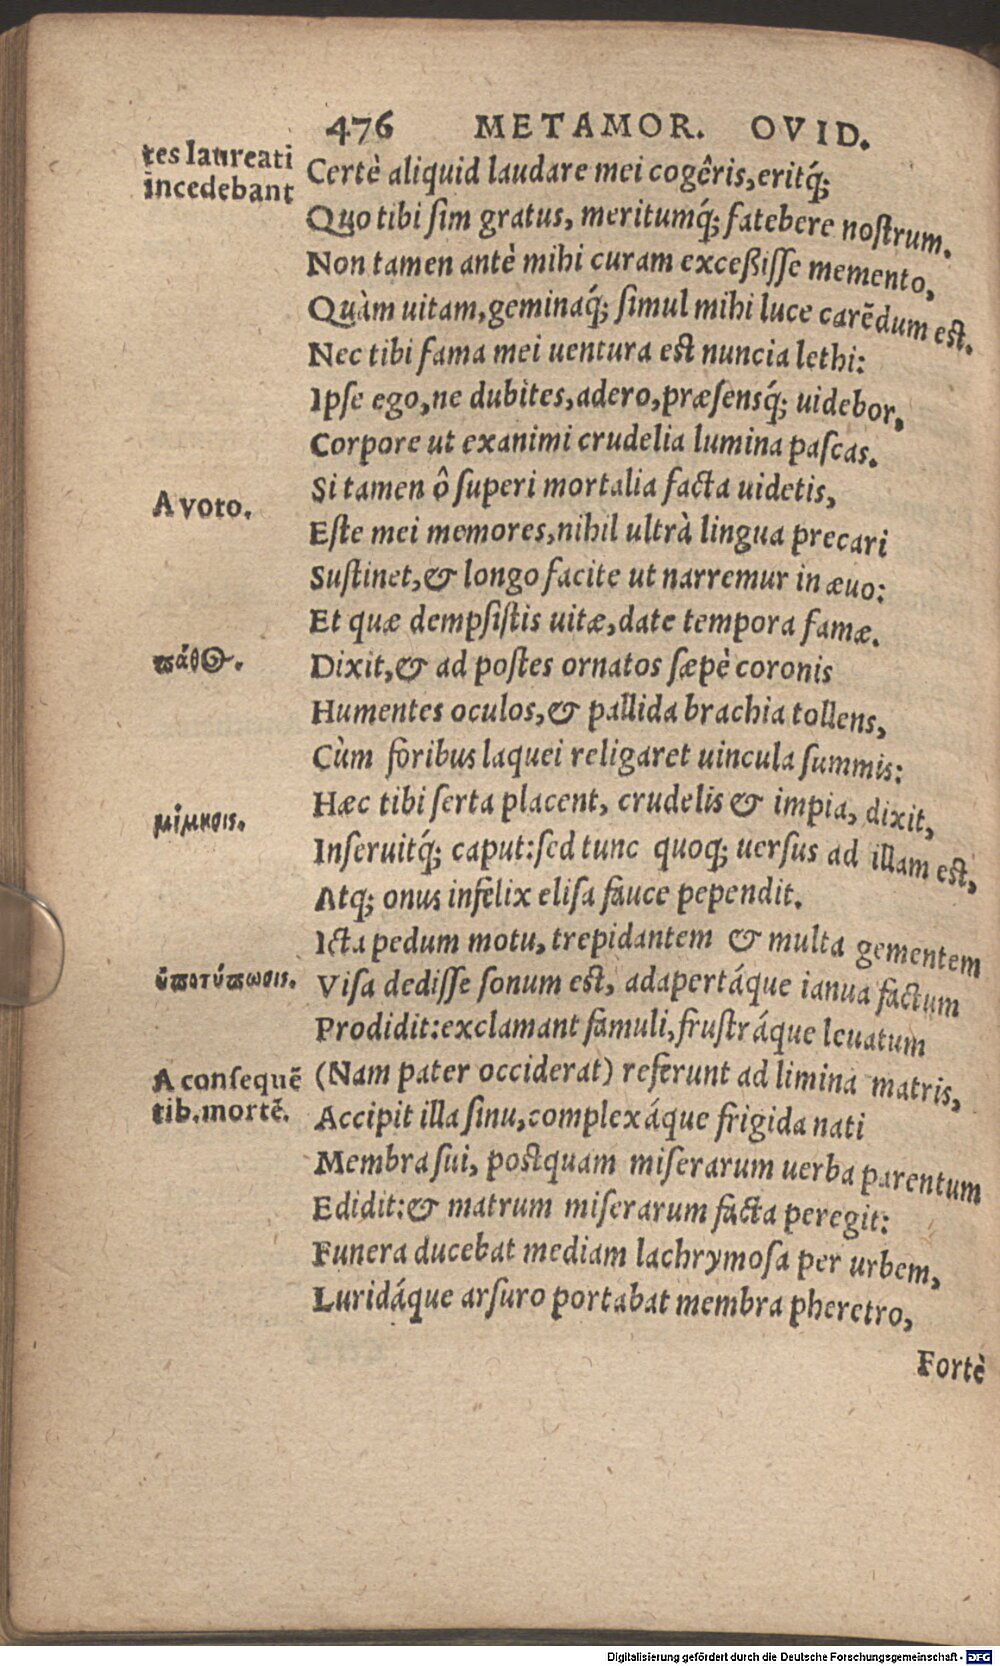 476 METAMOR. OVID.
tes laureati
incedebant
Certè aliquid laudare mei cogêris, eritq́;
Quo tibi ſim gratus, meritumq́; fatebere noſtrum.
Non tamen antè mihi curam exceßiſſe memento,
Quàm uitam, geminaq́; ſimul mihi luce carēdum eſt.
Nec tibi fama mei uentura eſt nuncia lethi:
Ipſe ego, ne dubites, adero, præſensq́; uidebor,
Corpore ut exanimi crudelia lumina paſcas.
Si tamen ô ſuperi mortalia facta uidetis,
A voto.
Eſte mei memores, nihil ultrà lingua precari
Suſtinet, & longo facite ut narremur in æuo:
Et quæ dempſiſtis uitæ, date tempora famæ.
πάθος.
Dixit, & ad poſtes ornatos ſæpè coronis
Humentes oculos, & pallida brachia tollens,
Cùm foribus laquei religaret uincula ſummis:
Hæc tibi ſerta placent, crudelis & impia, dixit,
μίμησις.
Inſeruitq́; caput: ſed tunc quoq; uerſus ad illam eſt,
Atq; onus infelix eliſa fauce pependit.
Icta pedum motu, trepidantem & multa gementem
ὑποτύπωσις.
Viſa dediſſe ſonum eſt, adapertáque ianua factum
Prodidit: exclamant famuli, fruſtráque leuatum
A conſequē
tib. mortē.
(Nam pater occiderat) referunt ad limina matris,
Accipit illa ſinu, complexáque frigida nati
Membra ſui, poſtquam miſerarum uerba parentum
Edidit: & matrum miſerarum facta peregit:
Funera ducebat mediam lachrymoſa per urbem,
Luridáque arſuro portabat membra pheretro,
Fortè
Digitalisierung gefördert durch die Deutsche Forschungsgemeinschaft - DFG